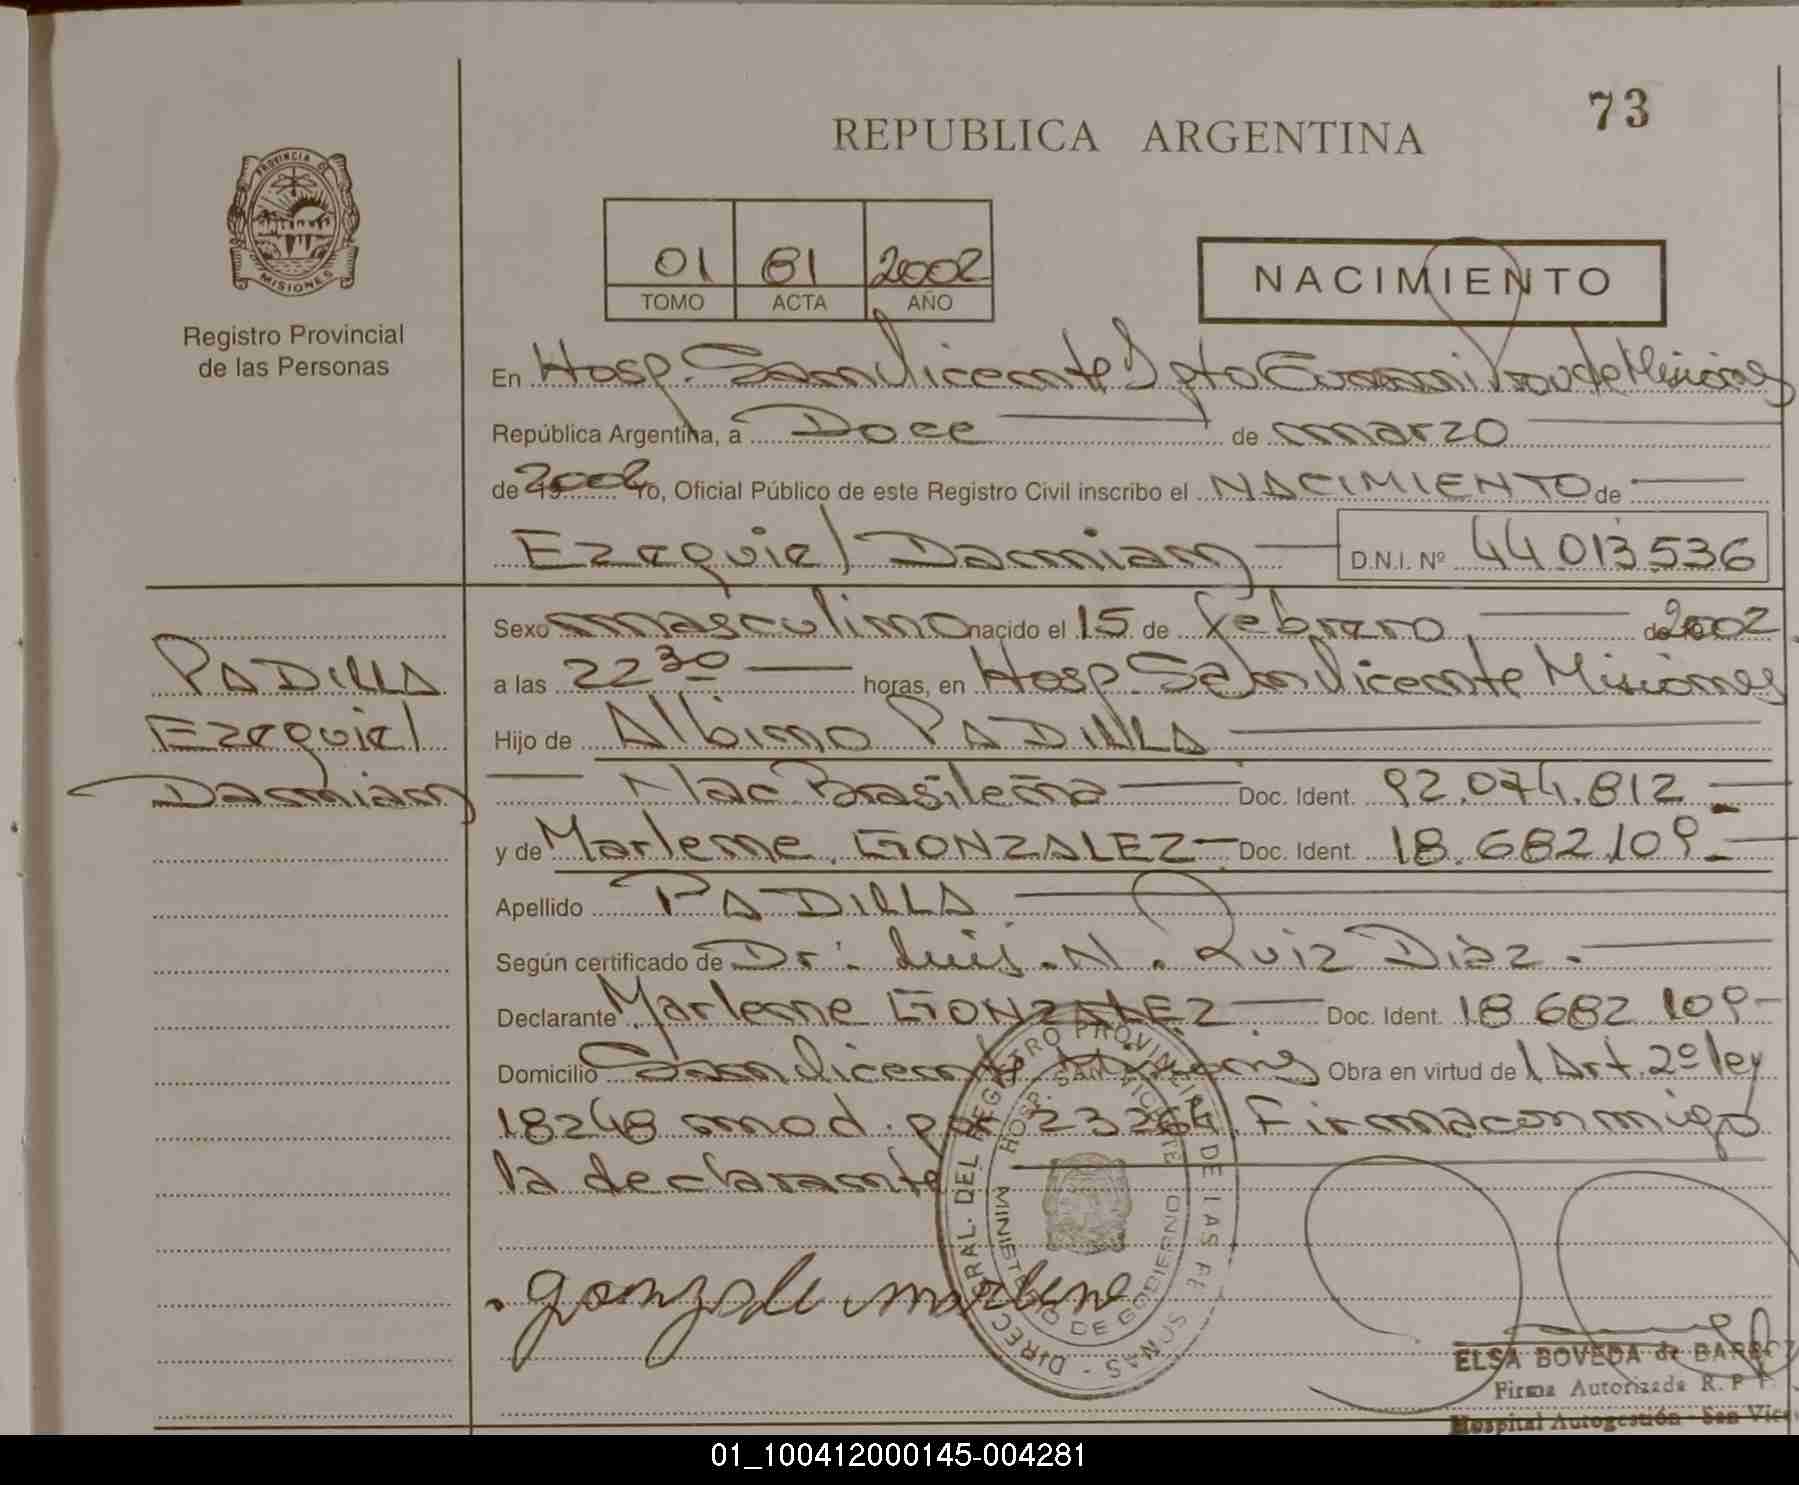 73
REPUBLICA ARGENTINA
PROVINCIA DE MISIONES
Registro Provincial
de las Personas
01 81 2002
TOMO ACTA AÑO
NACIMIENTO
En Hosp. San Vicente Dpto Guaraní Prov de Misiones
República Argentina, a Doce de marzo
de 2002 Yo, Oficial Público de este Registro Civil inscribo el NACIMIENTO de
Ezequiel Damian D.N.I. Nº 44 013 536
Sexo masculino nacido el 15 de febrero de 2002
PADILLA
Ezequiel
Damian
a las 22 30 horas, en Hosp. San Vicente Misiones
Hijo de Albino PADILLA
Nac Brasileña Doc. Ident. 92.074.812
y de Marlene GONZALEZ Doc. Ident. 18.682.109
Apellido PADILLA
Según certificado de Dr: Luis. N. Ruiz Diaz.
Declarante Marlene GONZALEZ Doc. Ident. 18 682 109
Domicilio San Vicente Misiones Obra en virtud del Art. 2º ley
18248 mod. por 23264. Firma conmigo
la declarante
gonzale marlene
DIREC. GRAL. DEL REGISTRO PROVINCIAL DE LAS PERSONAS
HOSP. SAN VICENTE
MINISTERIO DE GOBIERNO
ELSA BOVEDA de
Firma Autorizada R. P. P.
Hospital Autogestión - San Vice
01_100412000145-004281